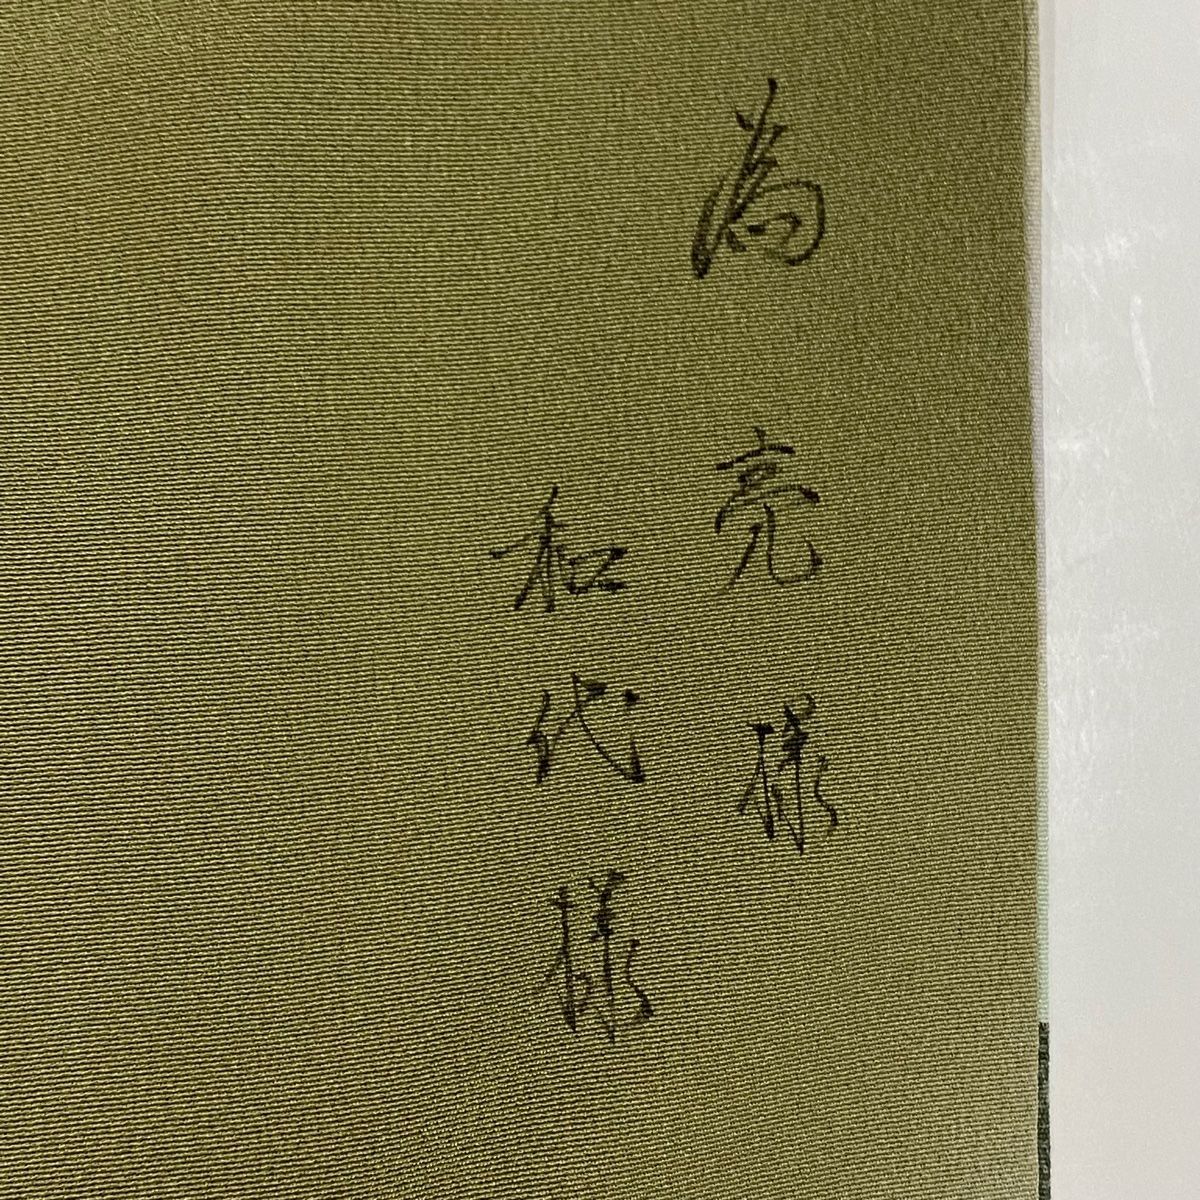 為 亮様
和代様